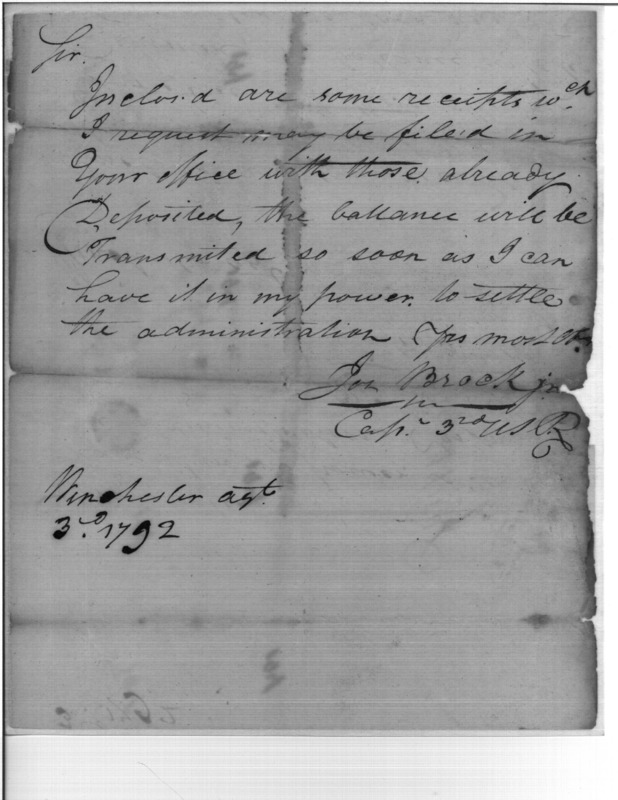 Sir.
Inclos.d are some receipts w.ch
I request may be filed in
Your office with those already
Deposited, the ballance will be
Transmited so soon as I can
have it in my power. to settle
the administration Yrs most
Brock jr
Cap.t 3rd US R
Winchester agt.
3.d 1792